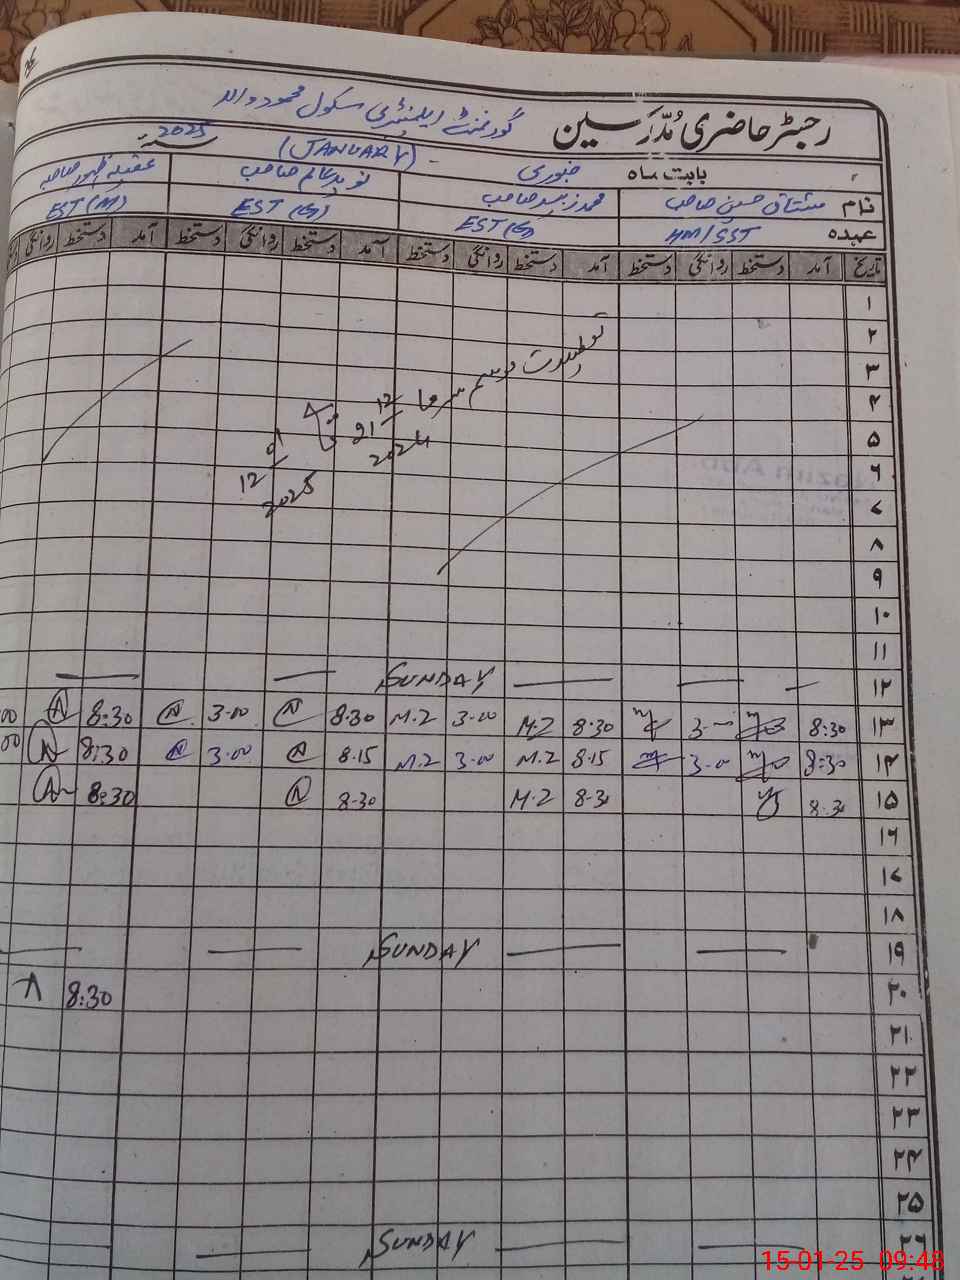 رجسٹر حاضری مُدّرسین گورنمنٹ ایلمنٹری سکول محمود والہ
بابت ماہ جنوری (JANUARY) سنہ 2025
نام مشتاق حسین صاحب محمد زبیر صاحب نوید عالم صاحب عقیلہ ظہور صاحبہ
عہدہ HM/SST EST(G) EST(G) EST(M)
تاریخ آمد دستخط روانگی دستخط آمد دستخط روانگی دستخط آمد دستخط روانگی دستخط آمد دستخط روانگی
۱
۲
۳
۴
۵
۶
۷
۸
۹
۱۰
۱۱
تعطیلات موسم سرما 21/12/2024 تا 12/01/2025
۱۲ SUNDAY
۱۳ 8:30 3-00 8:30 M.Z 3-00 M.Z 8.30 N 3.00 N 8:30 00
۱۴ 8:30 3-00 8.15 M.Z 3-00 M.Z 8.15 N 3-00 N 8:30 00
۱۵ 8.30 8-30 M.Z 8-30 N 8:30
۱۶
۱۷
۱۸
۱۹ SUNDAY
۲۰ 8:30
۲۱
۲۲
۲۳
۲۴
۲۵
۲۶ SUNDAY
15-01-25 09:48